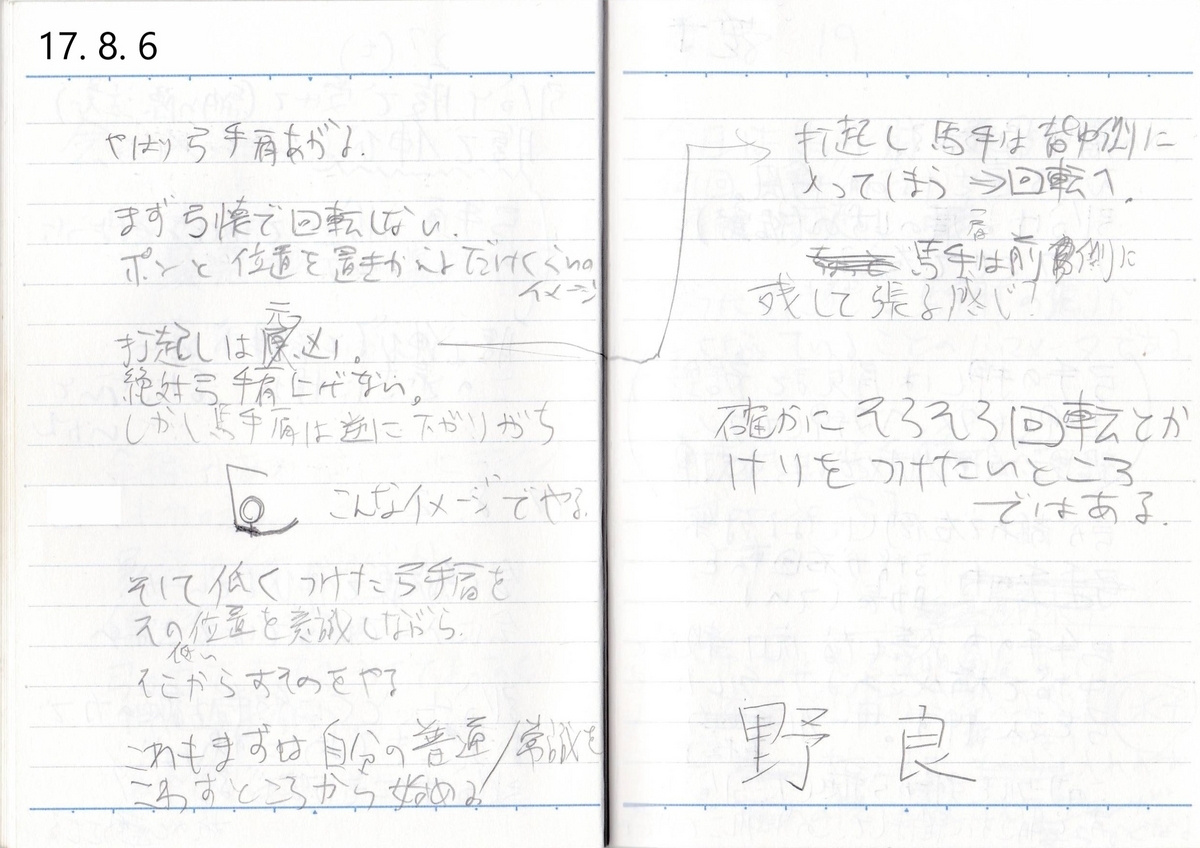 17. 8. 6
やはり弓手肩あがる.
まず弓懐で回転しない.
ポンと位置を置きかえるだけくらいの
イメージ
元
打起しは 返し。
絶対弓手肩上げない。
しかし馬手肩は逆に下がりがち
こんなイメージでやる.
そして低くつけた弓手肩を
その位置を意識しながら.
低い
そこからすそのをやる
これもまずは自分の普通/常識を
こわすところから始める
打起し馬手は背中側に
入ってしまう⇒回転へ.
肩
馬手は前 側に
残して張る感じ?
確かにそろそろ回転とか
けりをつけたいところ
ではある.
野良